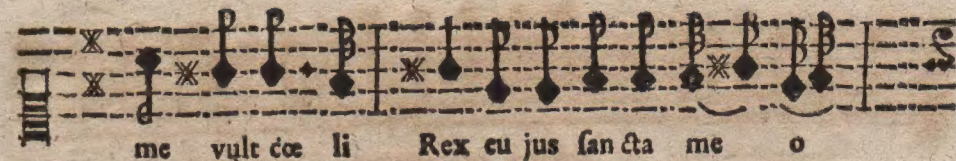 me vult cœ li Rex eu jus ſan cta me o